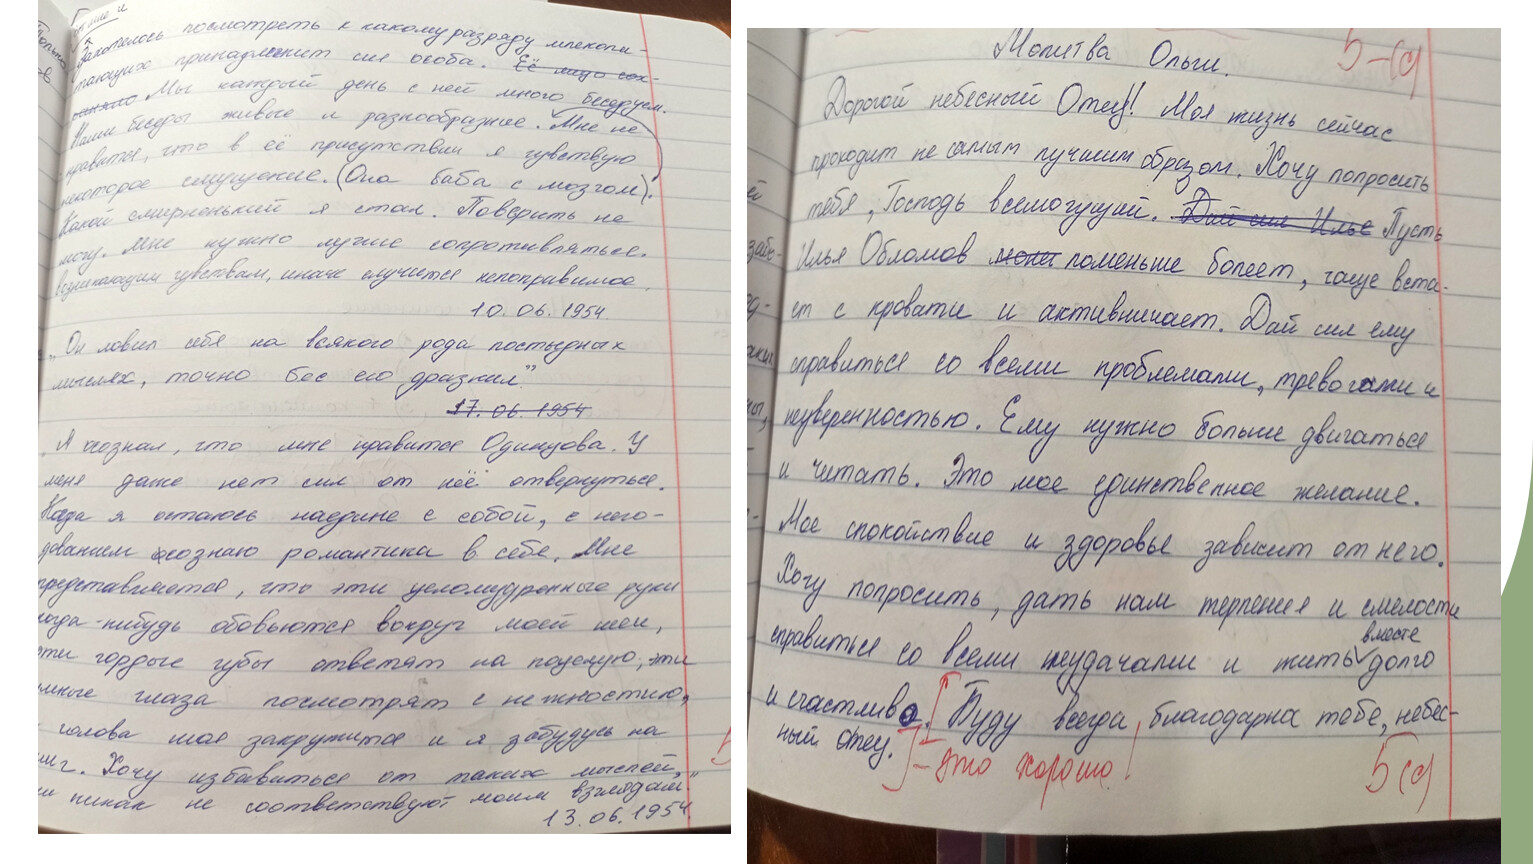 Захотелось посмотреть к какому разряду млекопи-
тающих принадлежит сия особа. Её лицо
Мы каждый день с ней много беседуем.
Наши беседы живые и разнообразные. Мне не
нравится, что в её присутствии я чувствую
некоторое смущение. (Она баба с мозгом).
Какой смирненький я стал. Поверить не
могу. Мне нужно лучше сопротивляться
возникающим чувствам, иначе случится непоправимое.
10.06.1954.
„Он ловил себя на всякого рода постыдных
мыслях, точно бес его дразнил."
17.06.1954
„Я осознал, что мне нравится Одинцова. У
меня даже нет сил от неё отвернуться.
Когда я остаюсь наедине с собой, с него-
дованием осознаю романтика в себе. Мне
представляется, что эти целомудренные руки
когда-нибудь обовьются вокруг моей шеи,
эти гордые губы ответят на поцелую, эти
умные глаза посмотрят с нежностию,
голова моя закружится и я забудусь на
миг. Хочу избавиться от таких мыслей,
никак не соответствуют моим взглядам."
13.06.1954
Молитва Ольги.
5-(с)
Дорогой небесный Отец! Моя жизнь сейчас
проходит не самым лучшим образом. Хочу попросить
тебя, Господь всемогущий. Дай сил Илье Пусть
Илья Обломов может поменьше болеет, чаще вста-
ет с кровати и активничает. Дай сил ему
справиться со всеми проблемами, тревогами и
неуверенностью. Ему нужно больше двигаться
и читать. Это мое единственное желание.
Мое спокойствие и здоровье зависит от него.
Хочу попросить, дать нам терпения и смелости
справиться со всеми неудачами и жить вместе долго
и счастливо. Буду всегда благодарна тебе, небес-
ный отец.
- это хорошо!
5(с)